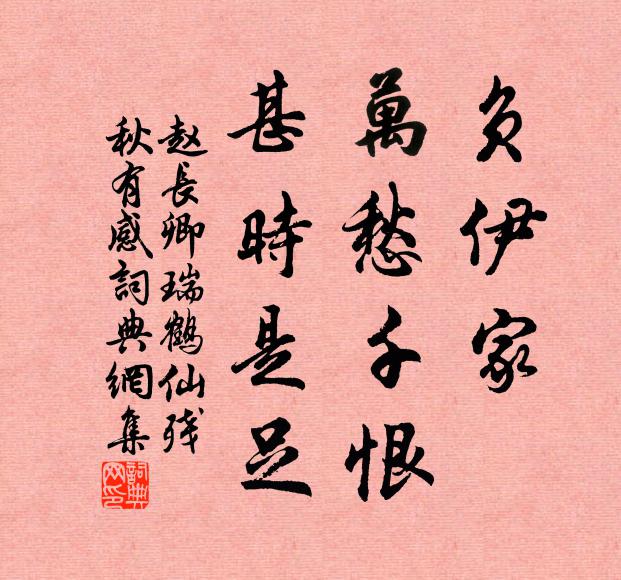 负伊家
萬愁千恨
甚時是足
赵長卿瑞鶴仙残
秋有感詞典網集
詞典網印